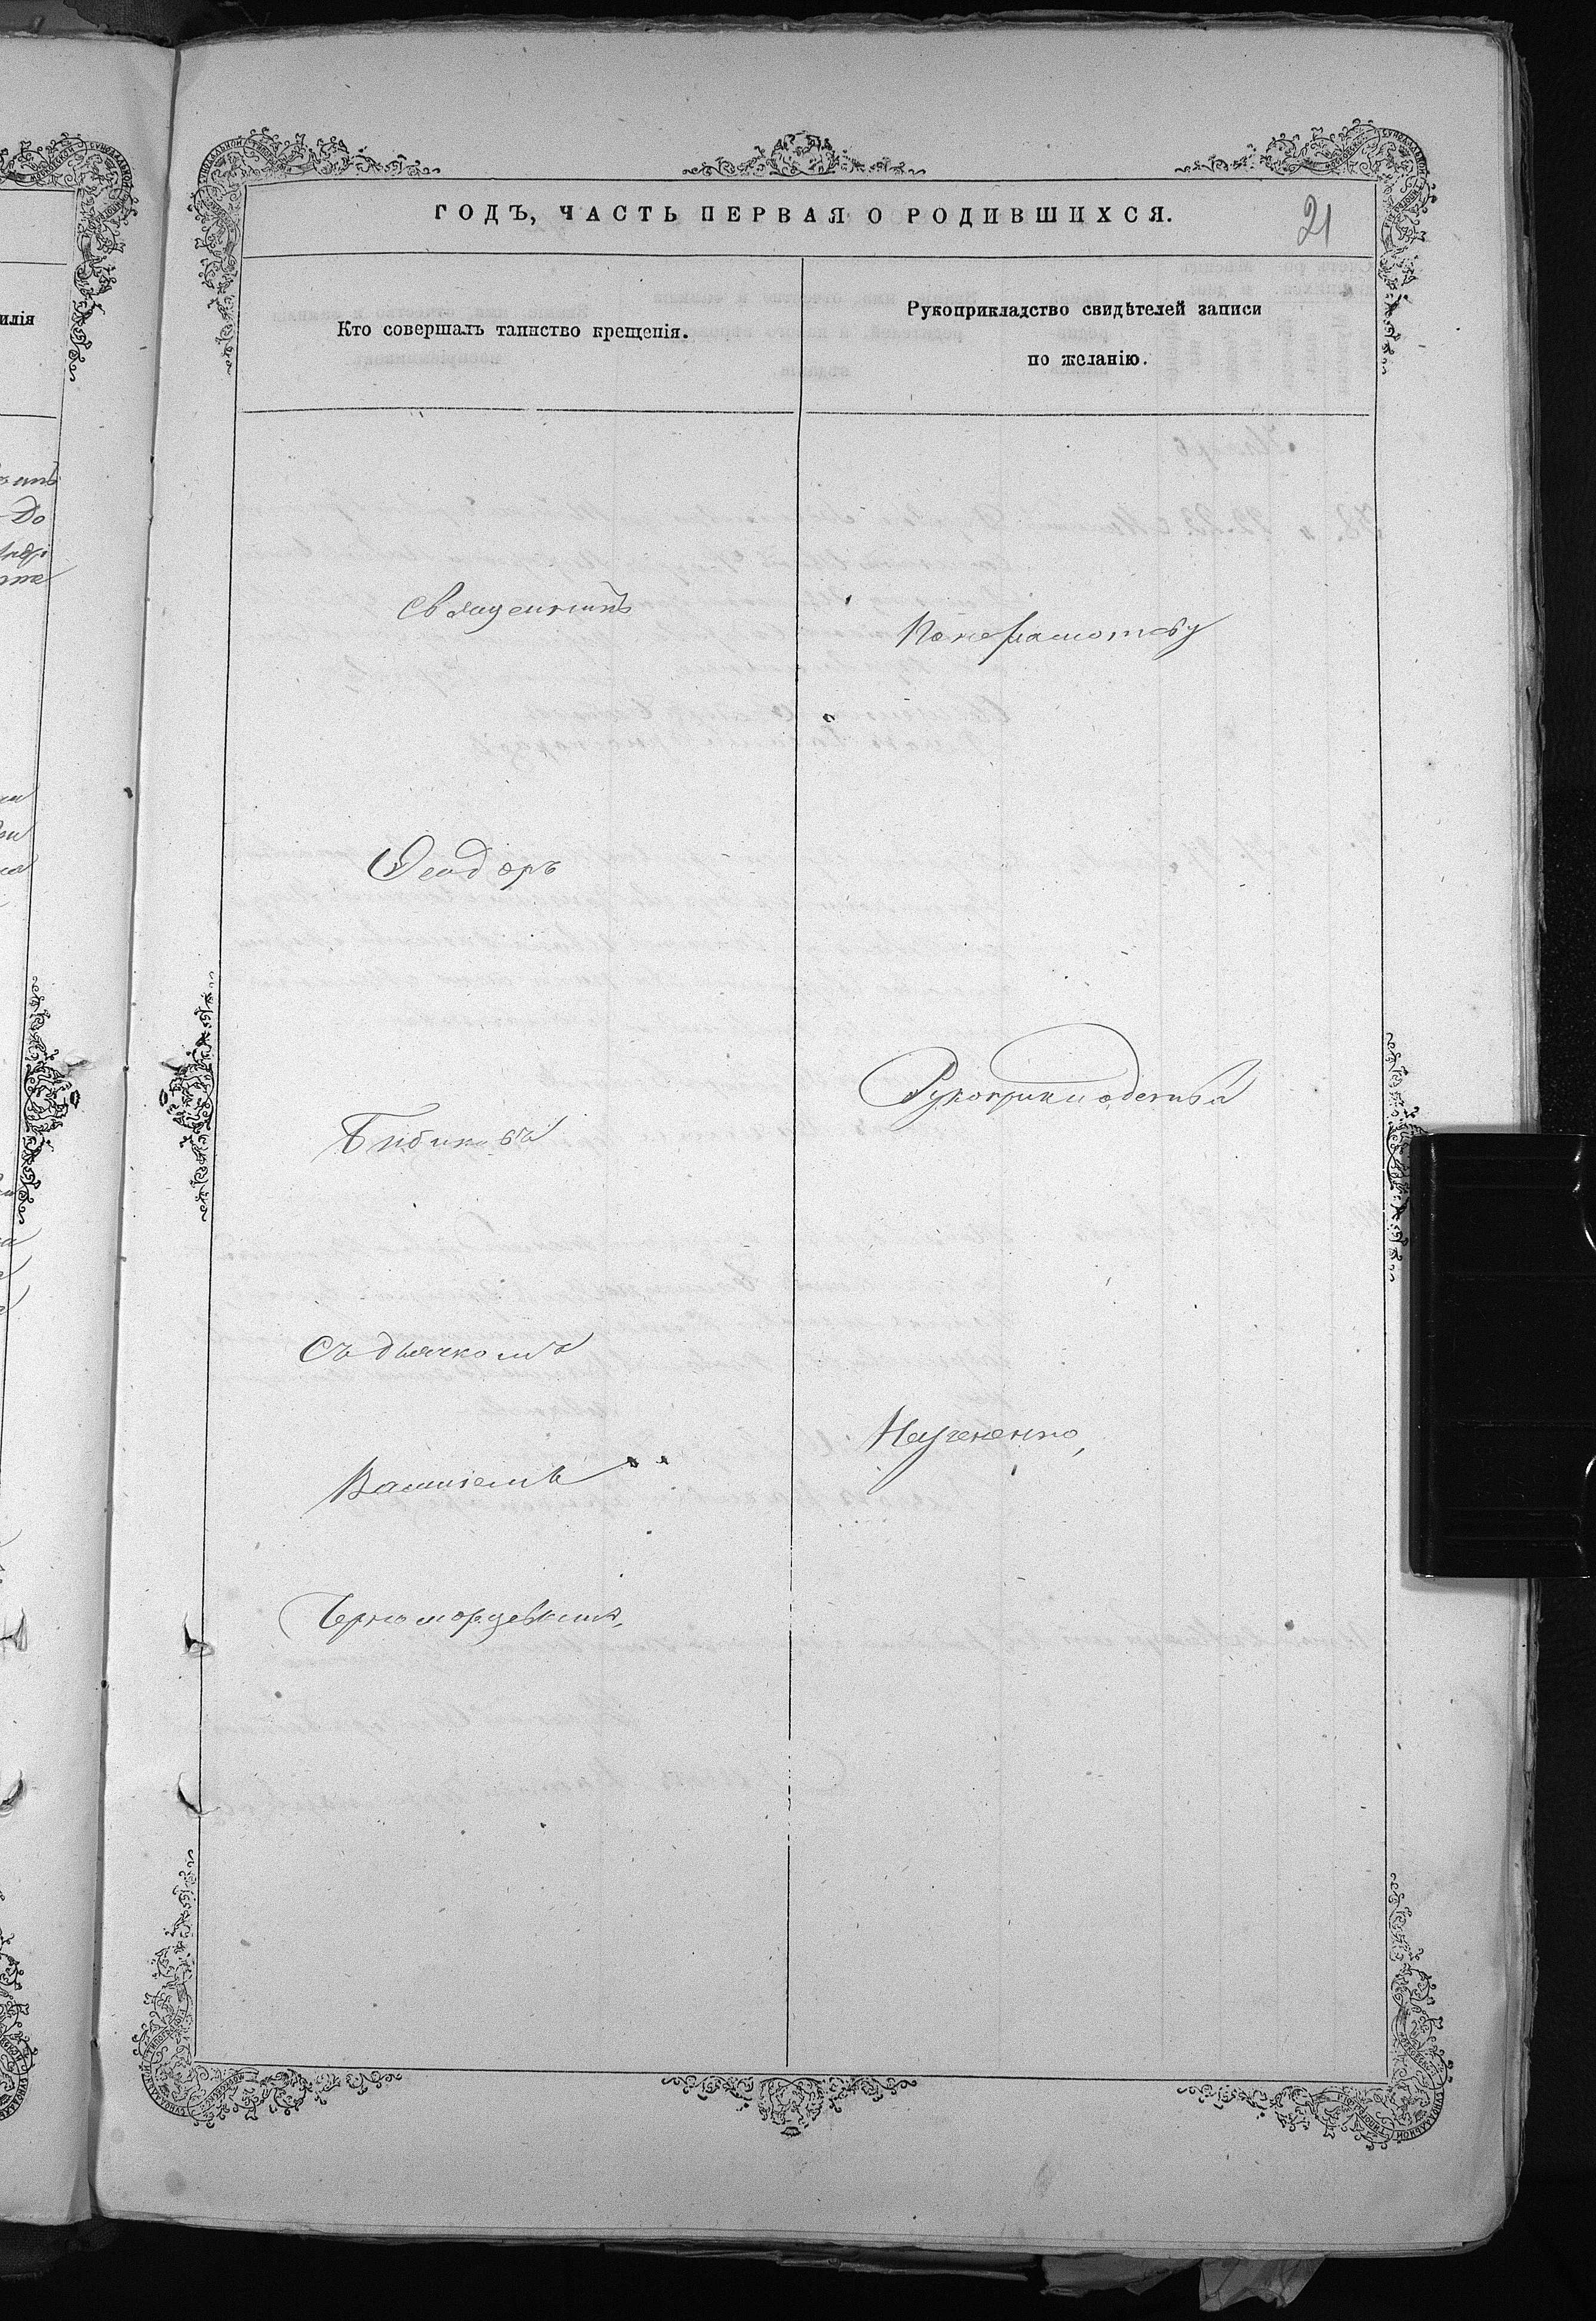 ГОДЪ, ЧАСТЬ ПЕРВАЯ О РОДИВШИХСЯ.
21
Кто совершалъ таинство крещенія.
Рукоприкладство свидѣтелей записи
по желанію.
Священникъ
Ѳеодоръ
Бибиковъ
Съ дьячкомъ
Василіемъ
Черноморцевымъ,
Понеграмотству
Рукоприкладства
Неучинено,
илія